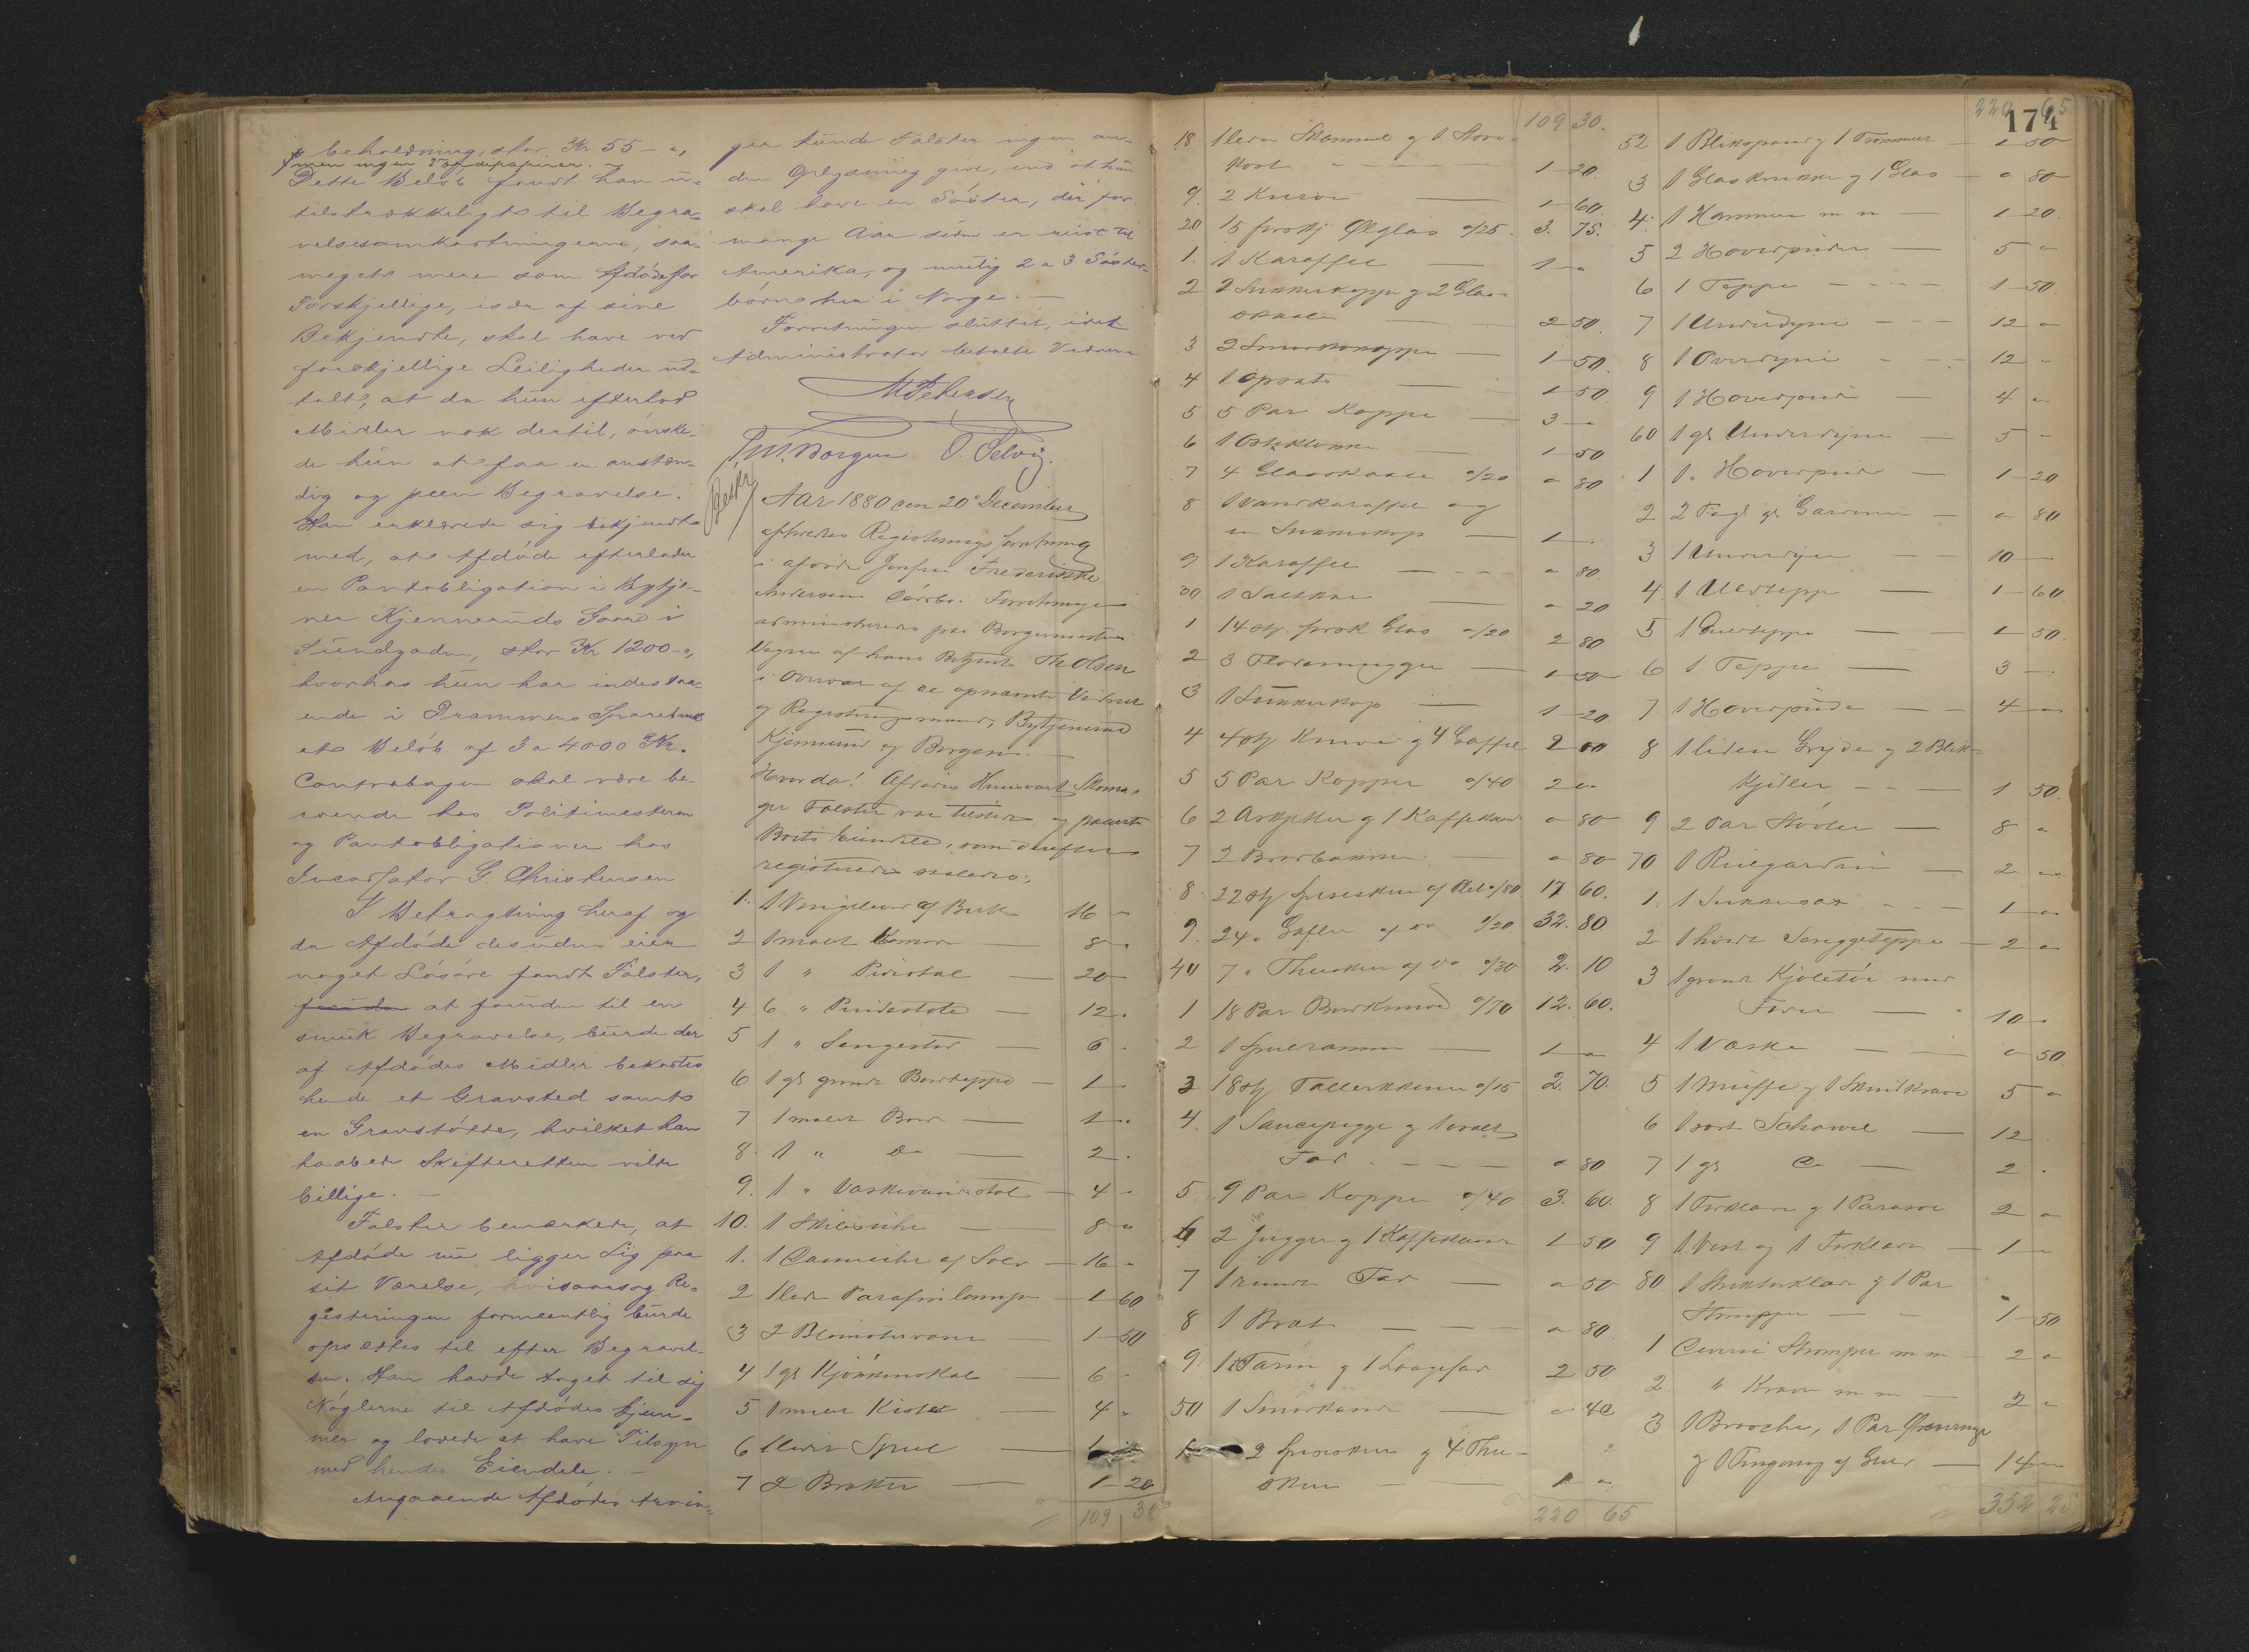 beholdning, stor Kr 55 - ",
men ingen Værdipapirer. -
Dette Beløb fandt han u-
tilstrækkeligt til Begra-
velsesomkostningerne, saa
meget mere som Afdøde for
Forskjellige, især af sine
Bekjendte, skal have ved
forskjellige Leiligheder ud-
talt, at da hun efterlod
Midler nok dertil, ønske-
de hun at faa en anstæn-
dig og peen Begravelse.
Han erklærede sig bekjendt
med, at Afdøde efterlader
en Pantobligation i Bytje-
ner Kjennerud's Gaard i
Sundgaden, stor Kr 1200 - ",
hvorhos hun har indestaa-
ende i Drammens Sparebank
et Beløb af 3 a 4000 Kr.
Contrabogen skal være be-
roende hos Politimesteren
og Pantobligationen hos
Incassator G Christensen
I Betragtning heraf og
da Afdøde desuden eier
noget Løsøre fandt Falster,
at foruden til en
smuk Begravelse, burde der
af Afdødes Midler bekostes
hende et Gravsted samt
en Gravstøtte, hvilket han
haabede Skifteretten vilde
billige. -
Falster bemærkede, at
Afdøde nu ligger Lig paa
sit Værelse, hvisaarsag Re-
gisteringen formeentlig burde
opsættes til efter Begravel-
sen. Han havde taget til sig
Nøglerne til Afdødes Gjem-
mer og lovede at have Tilsyn
med hendes Eiendele. -
Angaaende Afdødes Arvin-
ger kunde Falster ingen an-
den Oplysning give, end at hun
skal have en Søster, der for
mange Aar siden er reist til
Amerika, og mulig 2 a 3 Søster-
børn her i Norge. -
Forretningen sluttet, idet
Administrator betalte Vidnerne
M Petersen
Borgen O. Selvig.
Aar 1880 den 20de December
afholdtes Registerings forretning
i afdøde Jomfru Frederikke
Andersens Sterbo. Forretningen
administreredes paa Borgermesterens
Vegne af hans Betjent Th Olsen
i Overvær af de opnævnte Vidner
og Registeringsmænd, Bytjenerne
Kjennerud og Borgen. -
Hvorda! Afdødes Huusvært Skoma-
ger Falster var tilstede og paaviste
Boets Eiendele, som derefter
registreredes saaledes:
1. 1 Vingebord af Birk 16 -
2 1 malet Komode — 8 -
3 1 " Pidestal — 20 -
4 6 " Pindestole — 12 -
5 1 " Sengested — 6 -
6 1 gl grønt Bordteppe — 1 -
7 1 malet Bord — 1 -
8 1 " do — 2 -
9. 1 " Vaskevandsstol — 4 -
10. 1 Skilderie — 8 "
1. 1 Dameuhr af Sølv — 16 -
2 1 liden Parafinlampe — 1 60
3 2 Blomstervaser — 1 50
4 1 gl Kjøkkenskab — 6 -
5 1 malet Kiste — 4 -
6 1 lidet Speil — 1
7 2 Brætter — 1 20
109 30
109 30.
18 1 liden Skammel og 1 Støve-
kost — 1 20
9. 2 Kurve — 1 60
20 15 forskj Ølglas a/25 3. 75.
1. 1 Karaffel — 1 -
2 2 Sukkerkopper og 2 Glas-
skaale — 2 50.
3 2 Smørkopper — 1 50.
4 1 Opsats — 1 50
5 5 Par Kopper — 3 -
6 1 Osteklokke — 1 50
7 4 Glasskaale a/20 " 80
8 1 Vandkaraffel og
en Sukkerkop — 1 -
9 1 Karaffel — " 80.
30 1 Saltkar — " 20
1 14 stk forsk Glas a/20 2 80
2 3 Fløtemugger — 1 50
3 1 Sukkerkop — 1 20
4 4 stk Knive og 4 Gafler 2 00
5 5 Par Kopper a/40 2 "
6 2 Asjetter og 1 Kaffekande " 80
7 2 Brødbakker — " 80
8. 22 stk Spiseskeer af Plet a/80 17 60.
9. 24 " Gafler af do 32. 80
40 7 " Theskeer af do a/30 2. 10
1 18 Par Bordknive a/70 12. 60.
2 1 Speilramme — 1 "
3 18 stk Tallerkener a/15 2. 70.
4. 1 Saucemugge og 1 ovalt
Fad — " 80
5. 9 Par Kopper a/40 3. 60.
6 2 Jugger og 1 Kaffekande 1 50
7 1 rundt Fad — " 50
8 1 Bræt — " 80
9. 1 Tarin og 1 Laagefad 2 50
50 1 Smørkande — " 40
1 2 Spiseskeer og 4 The-
skeer — 1 "
220 65
220 65.
174
52 1 Blikspand og 1 Trommel — 1 50
3 1 Glaskrukke og 1 Glas — " 80
4. 1 Hammer m m — 1 20.
5 2 Hovedpuder — 5 "
6 1 Teppe — 1 50.
7 1 Underdyne — 12 "
8 1 Overdyne — 12 -
9 1 Hovedpude — 4 "
60 1 gl Underdyne — 5 "
1 1 " Hovedpude — 1 20
2 2 Fag gl Gardiner — " 80
3 1 Underdyne — 10 —
4. 1 Uldteppe — 1 60
5 1 — 1 50.
6 1 Teppe — 3 —
7 1 Hovedpude — 4 —
8 1 liden Gryde og 2 Blik-
kjedler — 1 50.
9 2 Par Støvler — 8 "
70 1 Rullegardin — 2 "
1. 1 Sukkersax — 1 "
2 1 hvidt Senggeteppe — 2 "
3 1 grønt Kjoletøi med
Foder — 10 "
4 1 Væske — " 50
5 1 Muffe og 1 Skindkrave 5 "
6 1 sort Schawl — 12
7 1 gl do — 2 -
8 1 Forklæde og 1 Parasol 2 "
9 1 Vest og 1 Forklæde — 1 "
80 1 Stk og 1 Par
Strømper — 1 50
1 Diverse Strømper m m — 2 "
2 " Kraver m m — 2 "
3 1 Broche, 1 Par Ørenringe
og 1 Fingerring af Guld — 14 "
352 25